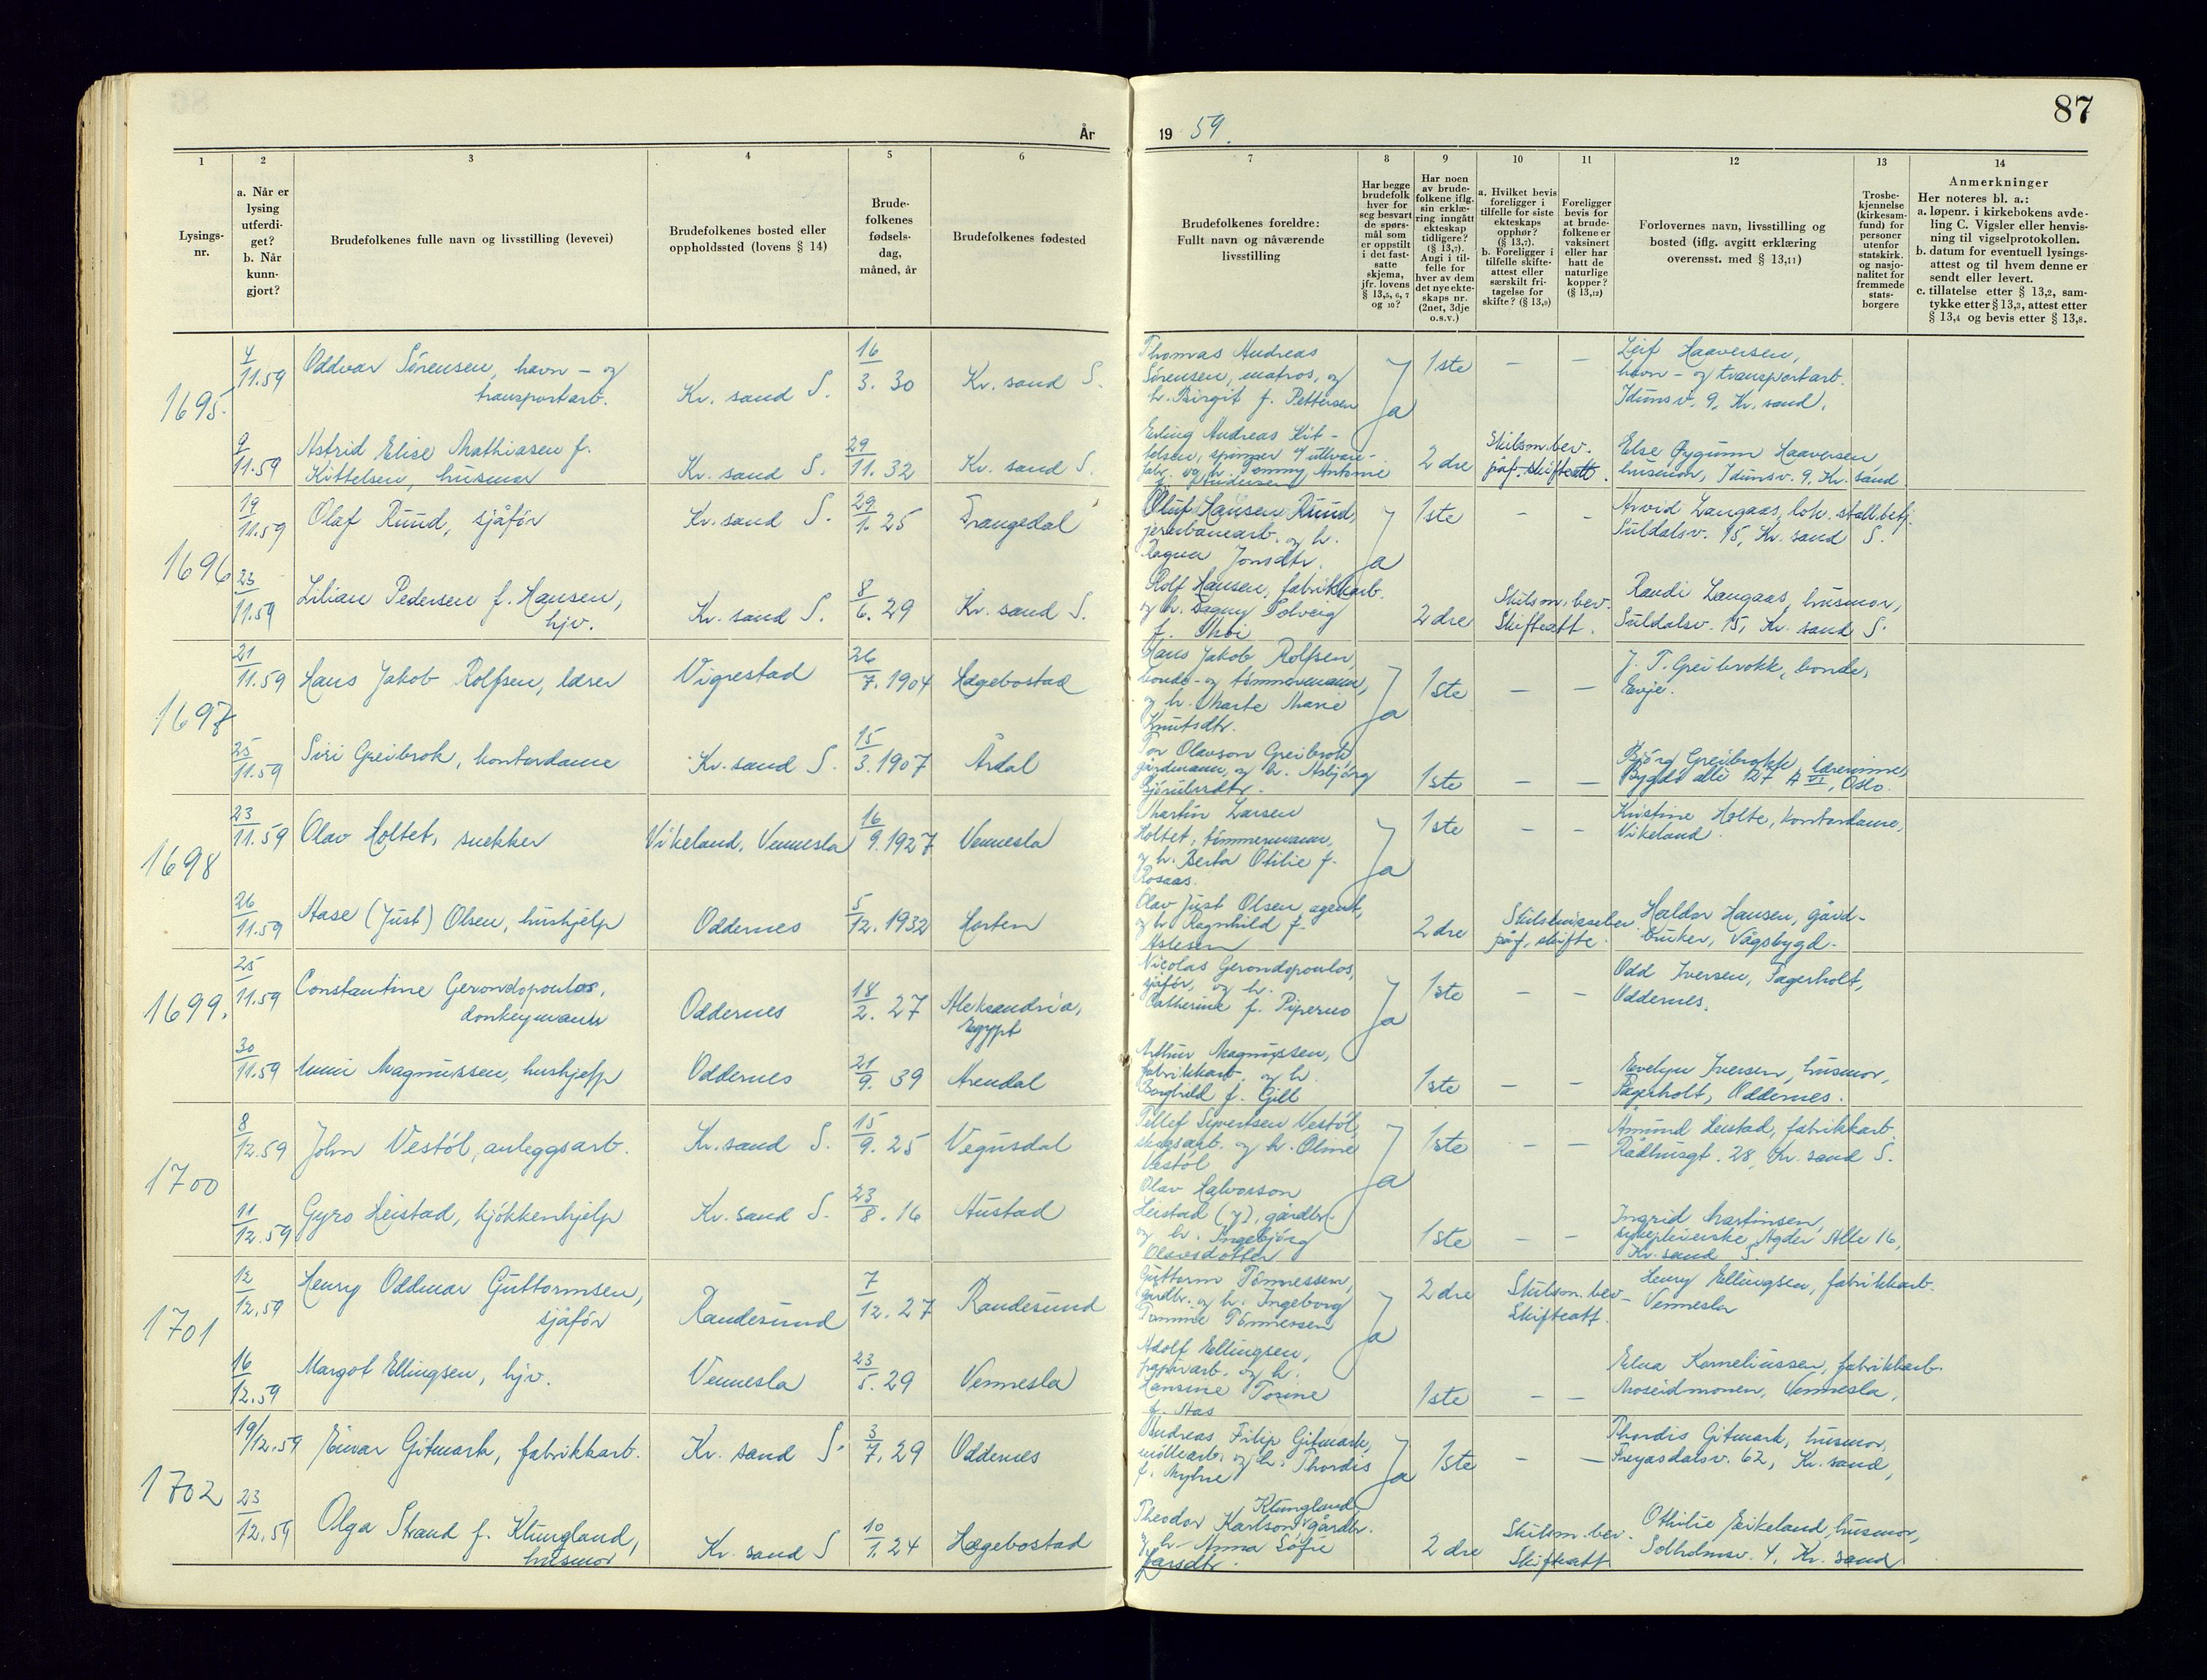 87
År 19 59.
1 2 3 4 5 6 7 8 9 10 11 12 13 14
Lysings-
nr.
a. Når er
lysing
utferdi-
get?
b. Når
kunn-
gjort?
Brudefolkenes fulle navn og livsstilling (levevei)
Brudefolkenes bosted eller
oppholdssted (lovens § 14)
Brude-
folkenes
fødsels-
dag,
måned, år
Brudefolkenes fødested
Brudefolkenes foreldre:
Fullt navn og nåværende
livsstilling
Har begge
brudefolk
hver for
seg besvart
de spørs-
mål som
er oppstilt
i det fast-
satte
skjema,
jfr. lovens
§ 13,5, 6, 7
og 10?
Har noen
av brude-
folkene iflg.
sin erklæ-
ring inngått
ekteskap
tidligere?
(§ 13,7).
Angi i til-
felle for
hver av dem
det nye ekte-
skaps nr.
(2net, 3dje
o.s.v.)
a. Hvilket bevis
foreligger i
tilfelle for siste
ekteskaps
opphør?
(§ 13,7).
b. Foreligger i
tilfelle skifte-
attest eller
særskilt fri-
tagelse for
skifte? (§ 13,9)
Foreligger
bevis for
at brude-
folkene er
vaksinert
eller har
hatt de
naturlige
kopper?
(§ 13,12)
Forlovernes navn, livsstilling og
bosted (iflg. avgitt erklæring
overensst. med § 13,11)
Trosbe-
kjennelse
(kirkesam-
fund) for
personer
utenfor
statskirk.
og nasjo-
nalitet for
fremmede
stats-
borgere
Anmerkninger
Her noteres bl. a.:
a. løpenr. i kirkebokens avde-
ling C. Vigsler eller henvis-
ning til vigselprotokollen.
b. datum for eventuell lysings-
attest og til hvem denne er
sendt eller levert.
c. tillatelse etter § 13,2, sam-
tykke etter § 13,3, attest etter
§ 13,4 og bevis etter § 13,8.
1695
4/11.59 Oddvar Sørensen, havn- og
transportarb. Kr. sand S. 16/3. 30 Kr. sand S.
Thomas Andreas
Sørensen, matros, og
h. Birgit f. Pettersen
Ja 1ste – –
Leif Haaversen,
havn- og transportarb.
Idunsv. 9, Kr. sand.
9/11.59 Astrid Elise Mathiasen f.
Kittelsen, husmor Kr. sand S. 29/11. 32 Kr. sand S.
Erling Andreas Kit-
telsen, spinner v/ ullvare-
fabr. og h. Jenny Antonie
f. Andersen
2 dre Skilsm. bev.
på f. skifteatt.
Else Øygunn Haaversen
husmor, Idunsv. 9, Kr. sand
1696
19/11.59 Olaf Ruud, sjåfør Kr. sand S. 29/1. 25 Drangedal
Oluf Hansen Ruud,
jernbanearb. og h.
Ragna Jonsdtr.
Ja 1ste – –
Arvid Langaas, lok. stallbetj.
Suldalsv. 15, Kr. sand S.
23/11.59 Lilian Pedersen f. Hansen,
hjv. Kr. sand S. 8/6. 29 Kr. sand S.
Rolf Hansen, fabrikkarb.
og h. Dagny Solveig
f. Moi
2 dre Skilsm. bev.
Skifteatt.
Randi Langaas, husmor,
Suldalsv. 15, Kr. sand S.
1697
21/11.59 Hans Jakob Rolfsen, lærer Vigrestad 26/7. 1904 Hægebostad
Hans Jakob Rolfsen,
bonde- og tømmermann,
og h. Marte Marie
Knutsdtr.
Ja 1ste – –
J. T. Greibrokk, bonde,
Evje.
25/11.59 Siri Greibrok, kontordame Kr. sand S. 15/3. 1907 Årdal
Tor Olavson Greibrok,
gårdmann, og h. Asbjørg
1ste – –
Bjørg Greibrokk, lærerinne,
Bygdø allé 127 A VI, Oslo.
1698
23/11.59 Olav Holtet, snekker Vikeland, Vennesla 16/9. 1927 Vennesla
Martin Larsen
Holtet, tømmermann,
og h. Berta Otilie f.
Rosaas.
Ja 1ste – –
Kristine Holte, kontordame,
Vikeland.
26/11.59 Aase (Just) Olsen, hushjelp Oddernes 5/12. 1932 Horten
Olav Just Olsen, agent,
og h. Ragnhild f.
Aslesen
2 dre
på f. skifte.
Haldor Hansen, gård-
bruker, Vågsbygd.
1699.
25/11.59 Constantine Gerondopoulos,
donkeymann Oddernes 18/2. 27 Aleksandria,
Egypt
Nicolas Gerondopoulos,
sjåfør, og h.
Catherine f. Piperno
Ja 1ste – –
Odd Iversen, Fagerholt,
Oddernes.
30/11.59 Unni Magnussen, hushjelp Oddernes 21/9. 39 Arendal
Arthur Magnussen,
fabrikkarb. og h.
Borghild f. Gill
1ste – –
Evelyn Iversen, husmor,
Fagerholt, Oddernes.
1700
8/12.59 John Vestøl, anleggsarb. Kr. sand S. 15/9. 25 Vegusdal
Tellef Sivertsen Vestøl,
skogsarb. og h. Oline
Vestøl
Ja 1ste – –
Åmund Heistad, fabrikkarb.
Rådhusgt. 28, Kr. sand S.
11/12.59 Gyro Heistad, kjøkkenhjelp Kr. sand S. 23/8. 16 Austad
Olav Halvorson
Heistad (y), gårdbr.
og h. Ingebjørg
Olavsdotter
1ste – –
Ingrid Martinsen,
sykepleierske, Agder Alle 16,
Kr. sand S.
1701
12/12.59 Henry Oddmar Guttormsen,
sjåfør Randesund 7/12. 27 Randesund
Guttorm Tønnessen,
gårdbr. og h. Ingeborg
Tomine Tønnessen
Ja 2 dre Skilsm. bev –
Skifteatt.
Henry Ellingsen, fabrikkarb.
Vennesla
16/12.59 Margot Ellingsen, hjv. Vennesla 23/5. 29 Vennesla
Adolf Ellingsen,
papirarb. og h.
Hansine Tosine
f. Aas
1ste – –
Elna Korneliussen, fabrikkarb.
Moseidmonen, Vennesla.
1702
19/12.59 Einar Gitmark, fabrikkarb. Kr. sand S. 3/7. 29 Oddernes
Andreas Filip Gitmark,
møllearb. og h. Thordis
f. Myhre
Ja 1ste – –
Thordis Gitmark, husmor,
Freyasdalsv. 62, Kr. sand,
23/12.59 Olga Strand f. Klungland,
husmor Kr. sand S 10/1. 24 Hægebostad
Klungland,
Theodor Karlson, gårdbr.
og h. Anna Sofie
Larsdtr.
2 dre Skilsm. bev.
Skifteatt
Othilie Eikeland, husmor,
Solholmsv. 4, Kr. sand